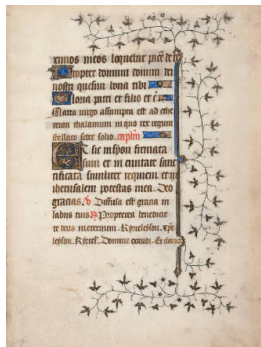 ximos meos loquebar pacē de te
Propter domum domini dei
nostri quesiui bona tibi
Gloria patri et filio et
Maria uirgo assumpta est ad ethe
reum thalamum in quo rex regum
stellato sedet solio. capitlm
Et sic in syon firmata
sum et in ciuitate sanc
tificata similiter requieui et in
iherusalem potestas mea. Deo
gracias. Diffusa est gracia in
labiis tuis. Propterea benedixit
te deus in eternum. Kyrieleyson. xpe
leyson. Kyriel. Domine exaudi. Et clamor